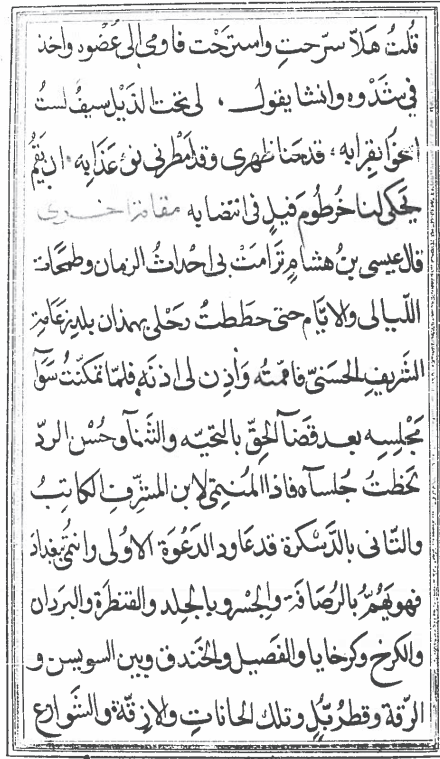 قلتُ هَلاّ سرّحتِ واسترحْت فاومى الى عُضْوه واخذ
فى شدْوه وانشا يقول ، لى تحت الذَيْل سيفٌ لستُ
بقِرابه ، قد حنا ظهرى وقد امطرنى نوْ عَذابِه ، ان يَقُمْ
يحكى لنا خُرطومَ فيلٍ فى انتصابه مقامة اخـرى
قال عيسى بنُ هشامٍ ترامَتْ بى احداثُ الزمان وطمحات
الليالى والايّام حتى حطَطتُ رَحْلى بهمذان بلديز عَامِر
الشريفِ الحسَنىّ فامّمته وأذِن لى اذنه فلمّا تمكّنتُ سَوَآ
مَجْلسِه بعد قضآ الحقّ بالتحيّه والثنآ وحُسْن الردّ
لحظتُ جُلسآه فاذا المُنتمى لابن المشرِّفِ الكاتبُ
والثانى بالدَسْكرة قد عاود الدَعْوَة الاوُلى وانتمى بغداد
فهو يَهُمُّ بالرُصَافة والجسْر وبالجلد والقنطرَة والبَردان
والكرخ وكرخايا والفَصيل والخَندق وبين السويسن و
الرّقة وقطربُّلٍ وتلك الحاناتِ والازِقّة والشوارع